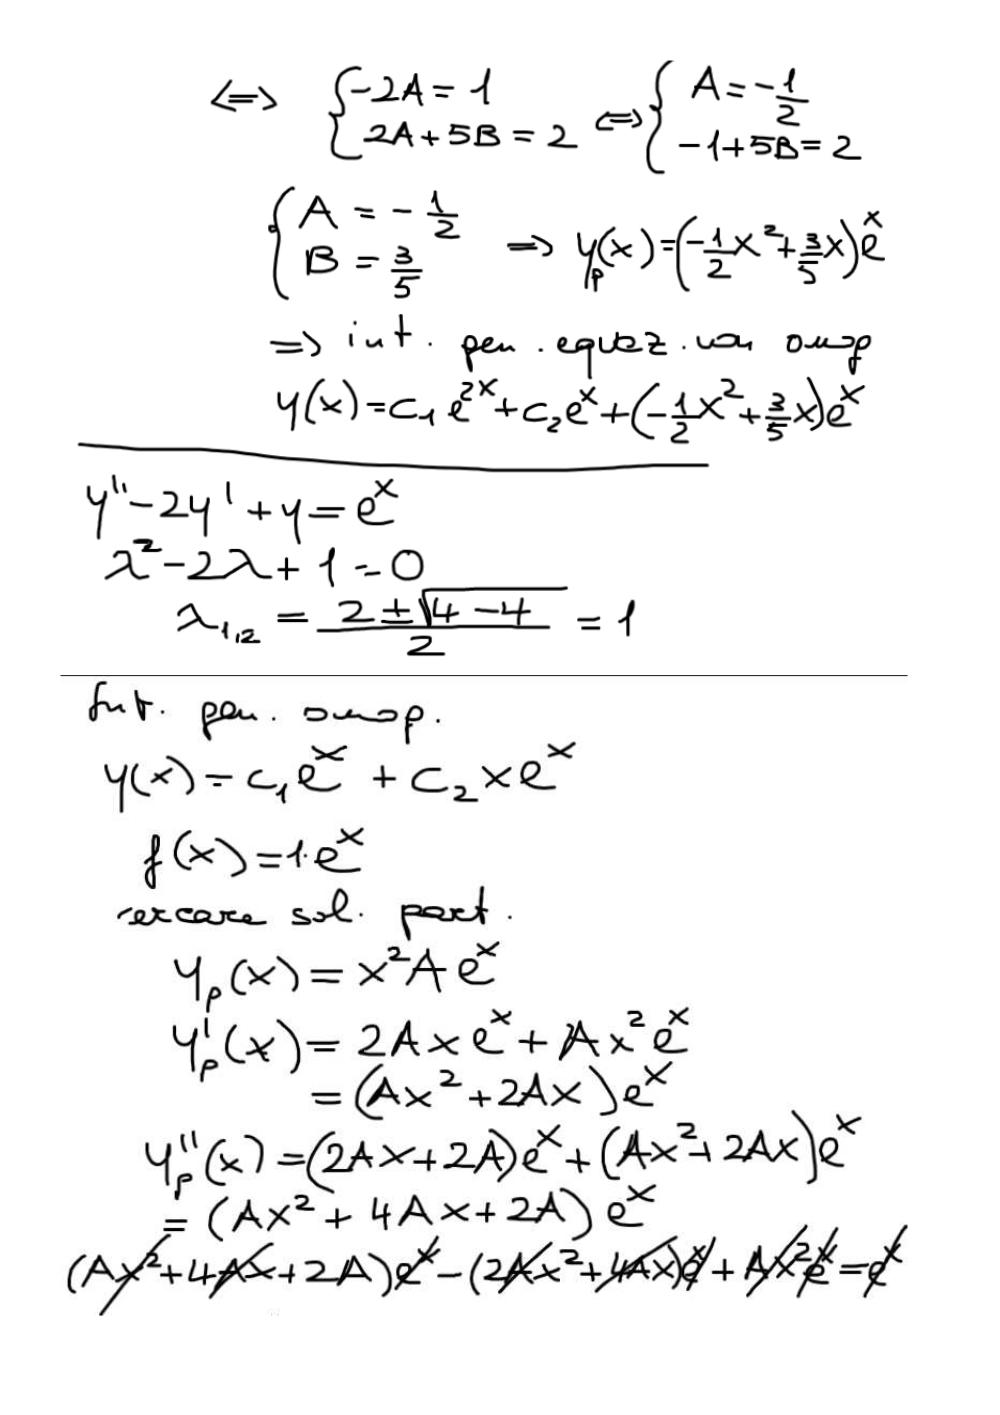 ⇔ { -2A = 1 2A + 5B = 2 ⇔ { A = -1/2 -1+5B = 2
{ A = -1/2 B = 3/5 ⇒ y_p(x) = (-1/2 x² + 3/5 x)e^x
⇒ int. gen. equaz. non omog
y(x) = c₁ e^{2x} + c₂e^x + (-1/2 x² + 3/5 x)e^x
y'' - 2y' + y = e^x
λ² - 2λ + 1 = 0
λ_{1,2} = (2 ± √(4 - 4))/2 = 1
Int. gen. omog.
y(x) = c₁e^x + c₂ x e^x
f(x) = 1·e^x
cercare sol. part.
y_p(x) = x² A e^x
y_p'(x) = 2A x e^x + A x² e^x
= (Ax² + 2Ax)e^x
y_p''(x) = (2Ax + 2A)e^x + (Ax² + 2Ax)e^x
= (Ax² + 4Ax + 2A) e^x
(Ax² + 4Ax + 2A)e^x - (2Ax² + 4Ax)e^x + Ax²e^x = e^x